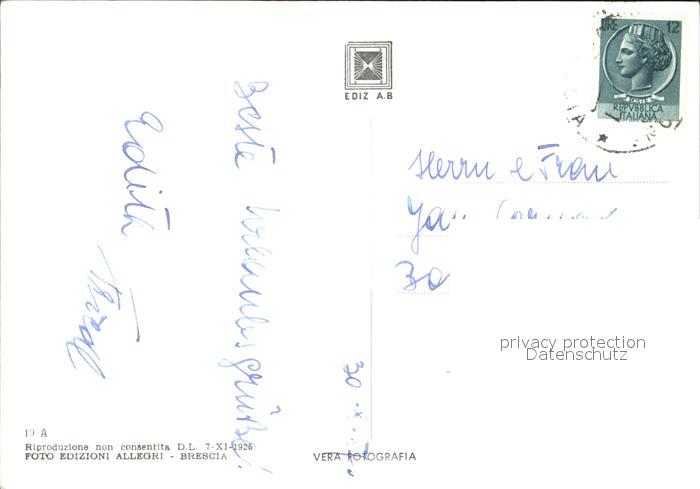 LIRE 12
POSTE
REPVBBLICA
ITALIANA
EDIZ A.B
Beste Urlaubsgrüße!
Edith
Herrn & Frau
privacy protection
Datenschutz
19 A
Riproduzione non consentita D.L. 7-XI-1926
FOTO EDIZIONI ALLEGRI - BRESCIA
VERA FOTOGRAFIA